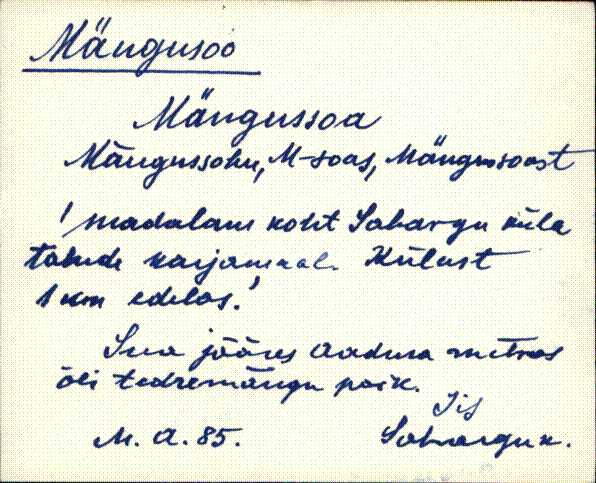 Mängusoo
Mängussoa
Mängussohu, M-soas, Mängussoast
/ madalam koht Sahargu küla
talude karjamaal. Külast
1 km edelas. /
Sua jääres Aadura mētsas
õli tedremängu paik.
Jis
M. A. 85. Sahargu k.